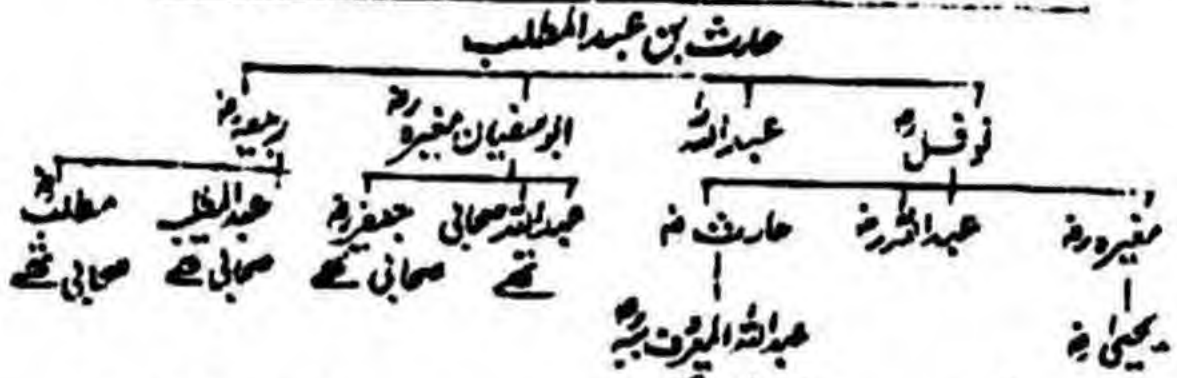 حارث بن عبدالمطلب
نوفلؓ عبداللہ ابوسفیان مغیرہؓ ربیعہؓ
مغیرہؓ عبداللہؓ حارثؓ عبداللہ صحابی تھے جعفرؓ صحابی تھے عبدالمطلب صحابی تھے مطلبؓ صحابی تھے
یحییٰؓ عبداللہ المعروف ببہؓ